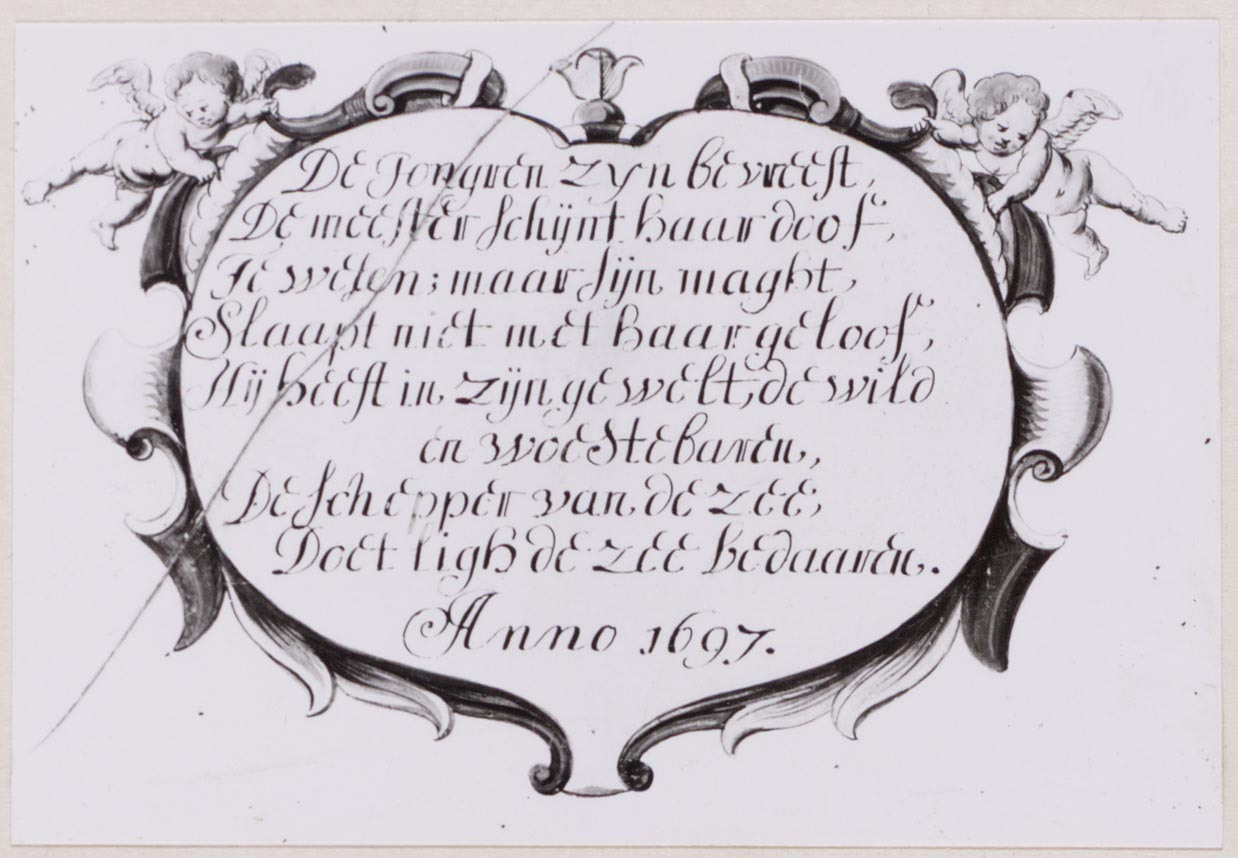 De Jongren zyn bevreest,
De meester schijnt haar doof,
Te wesen; maar sijn maght,
Slaapt niet met haar geloof,
Hij heeft in zijn gewelt, de wild
en woeste baren,
De schepper van de zee,
Doet sigh de zee bedaaren.
Anno 1697.